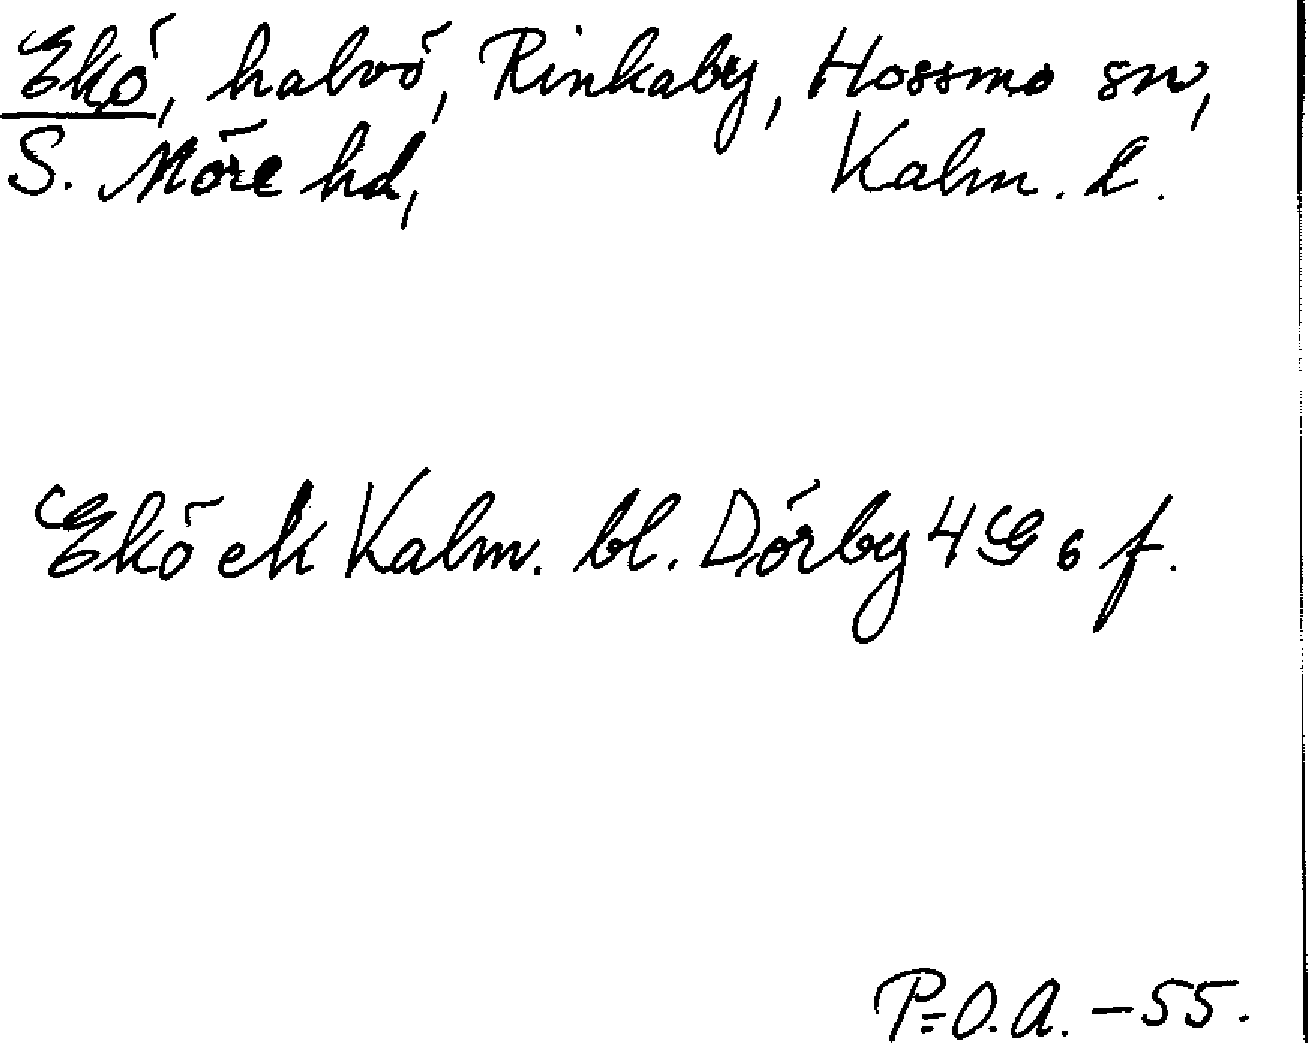 Ekö, halvö, Rinkaby, Hossmo sn,
S. Möre hd, Kalm. l.
Ekö ek Kalm. bl. Dörby 4 G 6 f.
P=O.A. -55.